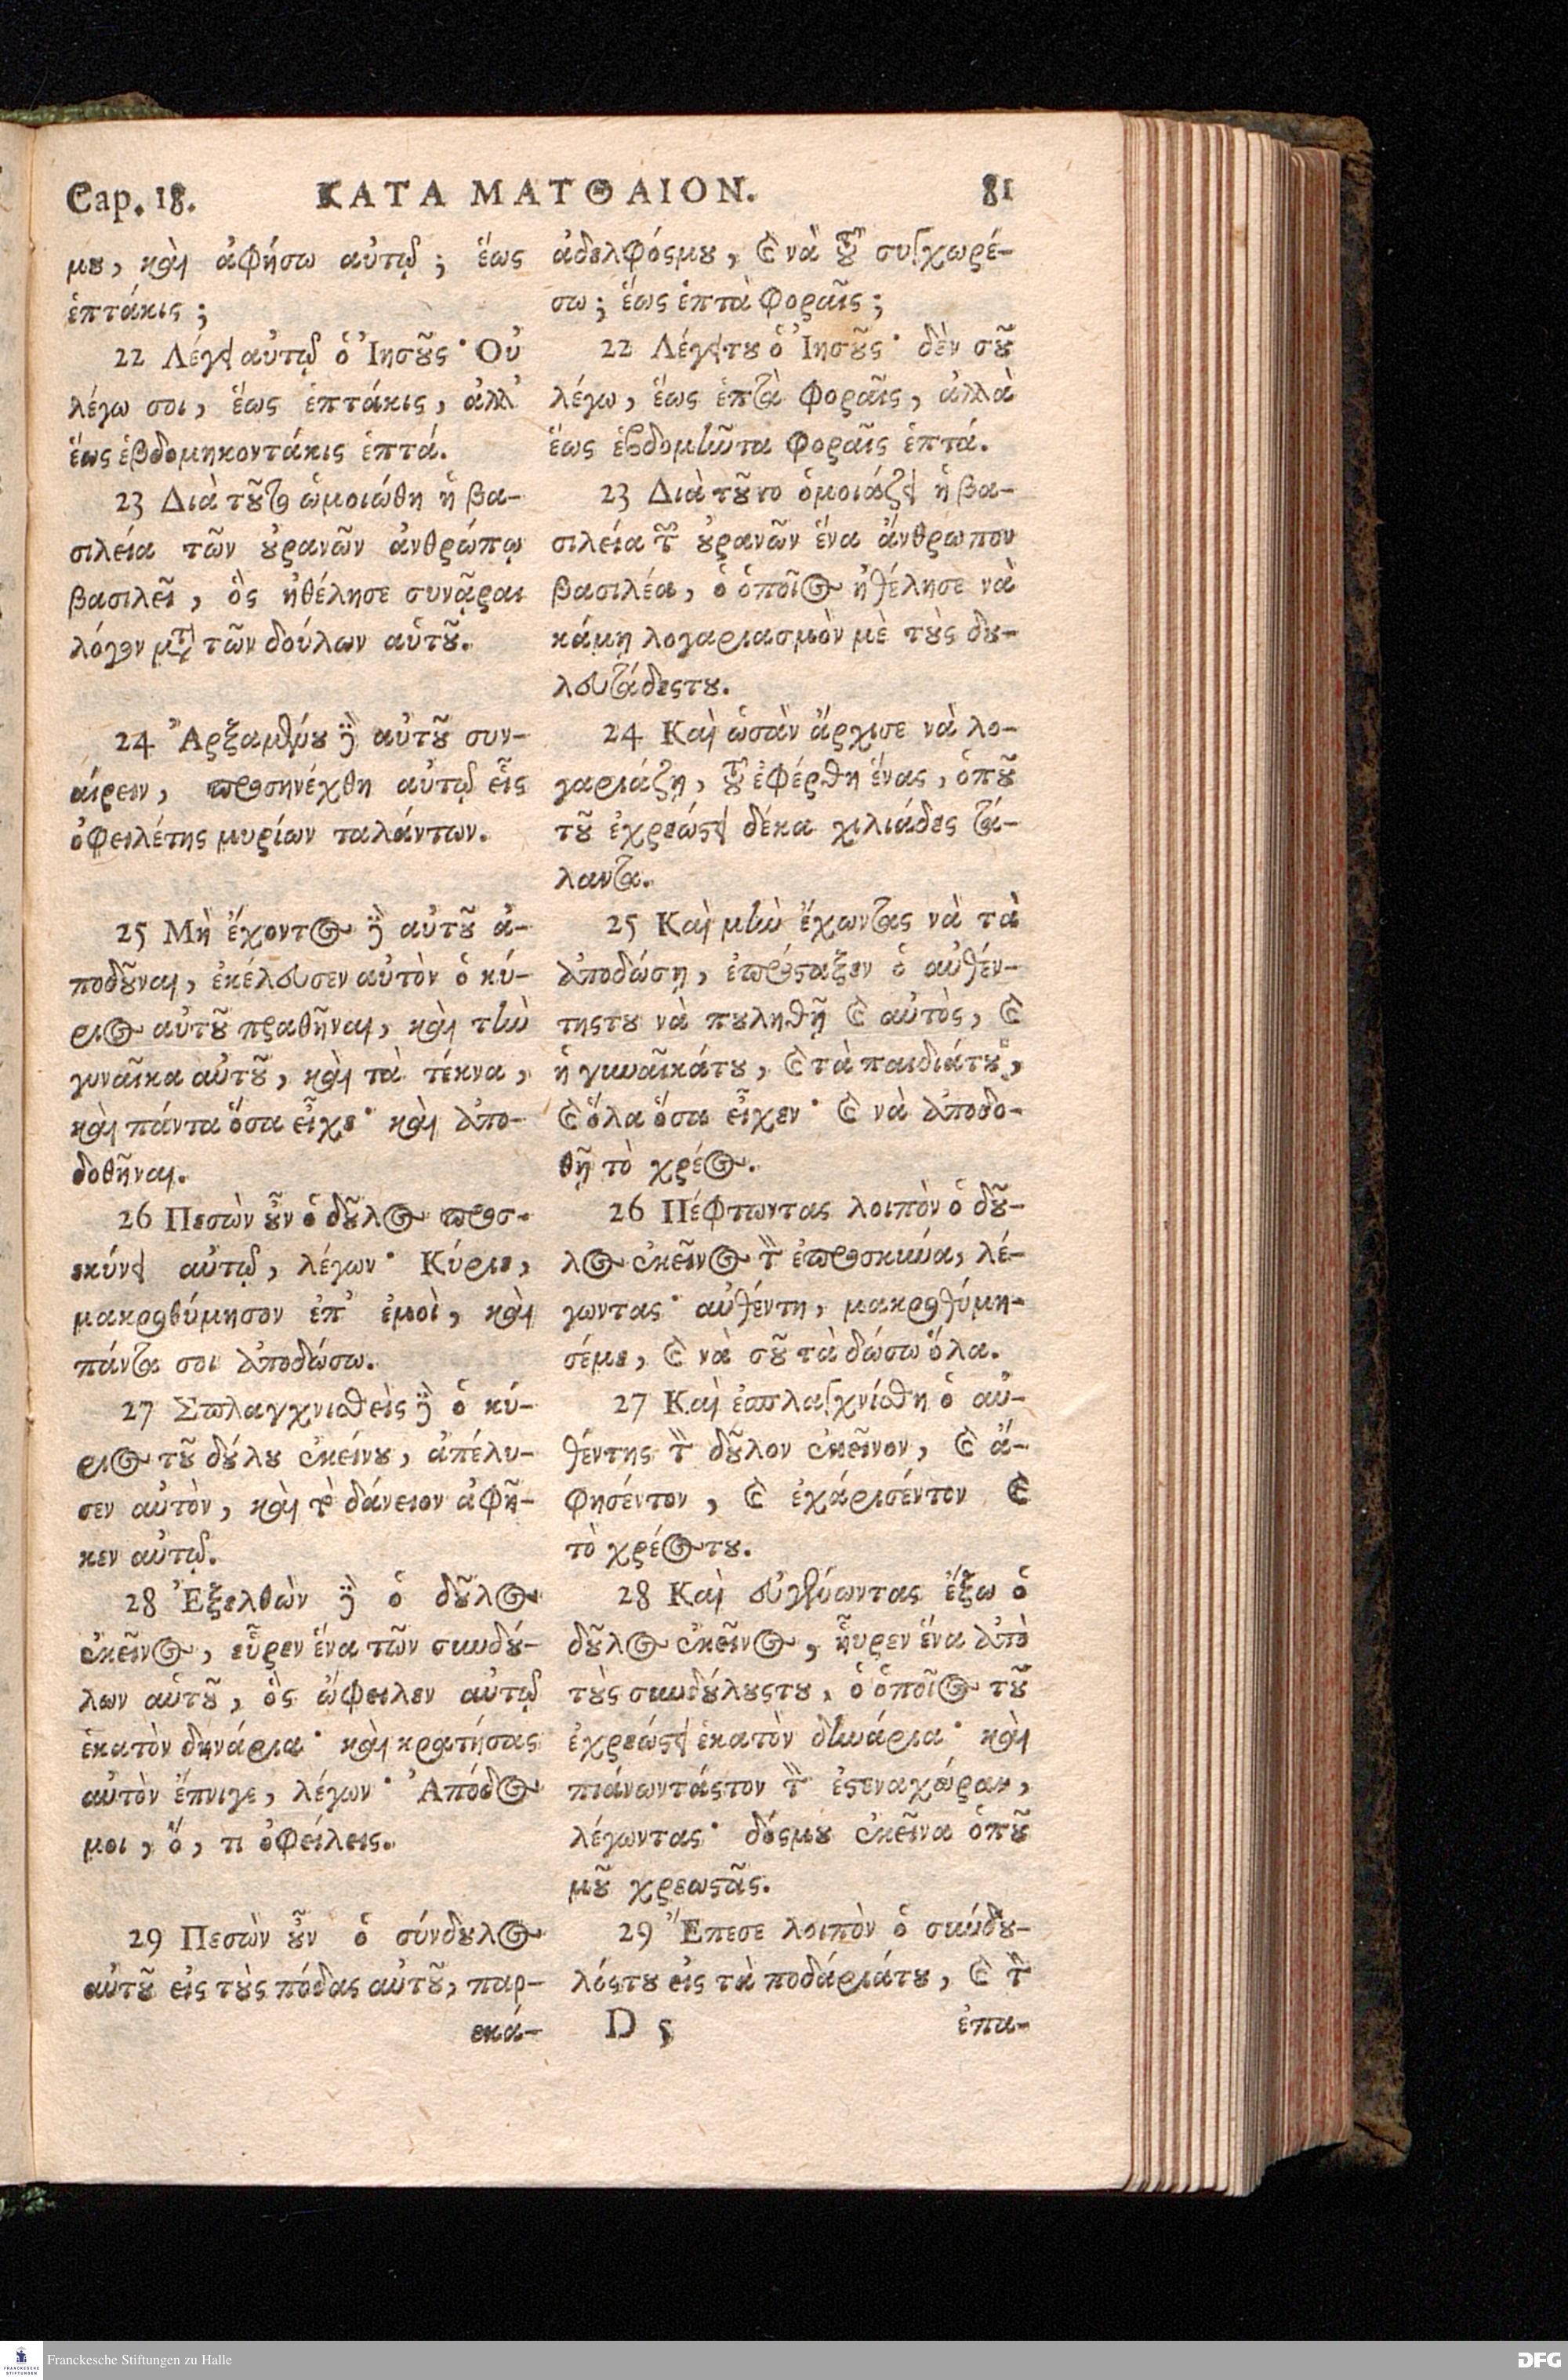 Cap. 18. ΚΑΤΑ ΜΑΤΘΑΙΟΝ. 81
μου, καὶ ἀφήσω αὐτῷ; ἕως
ἑπτάκις;
22 Λέγει αὐτῷ ὁ Ἰησοῦς· Οὐ
λέγω σοι, ἕως ἑπτάκις, ἀλλ'
ἕως ἑβδομηκοντάκις ἑπτά.
23 Διὰ τοῦτο ὡμοιώθη ἡ βα-
σιλεία τῶν οὐρανῶν ἀνθρώπῳ
βασιλεῖ, ὃς ἠθέλησε συνᾶραι
λόγον μετὰ τῶν δούλων αὑτοῦ.
24 Ἀρξαμένου δὲ αὐτοῦ συν-
αίρειν, προσηνέχθη αὐτῷ εἷς
ὀφειλέτης μυρίων ταλάντων.
25 Μὴ ἔχοντος δὲ αὐτοῦ ἀ-
ποδοῦναι, ἐκέλευσεν αὐτὸν ὁ κύ-
ριος αὐτοῦ πραθῆναι, καὶ τὴν
γυναῖκα αὐτοῦ, καὶ τὰ τέκνα,
καὶ πάντα ὅσα εἶχε· καὶ ἀπο-
δοθῆναι.
26 Πεσὼν οὖν ὁ δοῦλος προσ-
εκύνει αὐτῷ, λέγων· Κύριε,
μακροθύμησον ἐπ' ἐμοὶ, καὶ
πάντα σοι ἀποδώσω.
27 Σπλαγχνισθεὶς δὲ ὁ κύ-
ριος τοῦ δούλου ἐκείνου, ἀπέλυ-
σεν αὐτὸν, καὶ τὸ δάνειον ἀφῆ-
κεν αὐτῷ.
28 Ἐξελθὼν δὲ ὁ δοῦλος
ἐκεῖνος, εὗρεν ἕνα τῶν συνδού-
λων αὑτοῦ, ὃς ὤφειλεν αὐτῷ
ἑκατὸν δηνάρια· καὶ κρατήσας
αὐτὸν ἔπνιγε, λέγων· Ἀπόδος
μοι, ὅ, τι ὀφείλεις.
29 Πεσὼν οὖν ὁ σύνδουλος
αὐτοῦ εἰς τοὺς πόδας αὐτοῦ, παρ-
εκά-
ἀδελφόςμου, καὶ νὰ τοῦ συγχωρέ-
σω; ἕως ἑπτὰ φοραῖς;
22 Λέγειτου ὁ Ἰησοῦς· δὲν σοῦ
λέγω, ἕως ἑπτὰ φοραῖς, ἀλλὰ
ἕως ἑβδομῆντα φοραῖς ἑπτά.
23 Διὰ τοῦτο ὁμοιάζει ἡ βα-
σιλεία τῶν οὐρανῶν ἕνα ἄνθρωπον
βασιλέα, ὁ ὁποῖος ἠθέλησε νὰ
κάμῃ λογαριασμὸν μὲ τοὺς δου-
λευτάδεςτου.
24 Καὶ ὡσὰν ἄρχισε νὰ λο-
γαριάζῃ, τοῦ ἐφέρθη ἕνας, ὁποῦ
τοῦ ἐχρεώστει δέκα χιλιάδες τά-
λαντα.
25 Καὶ μὴν ἔχωντας νὰ τὰ
ἀποδώσῃ, ἐπρόσταξεν ὁ αὐθέν-
τηςτου νὰ πουληθῇ καὶ αὐτὸς, καὶ
ἡ γυναῖκάτου, καὶ τὰ παιδιάτου,
καὶ ὅλα ὅσα εἶχεν· καὶ νὰ ἀποδο-
θῇ τὸ χρέος.
26 Πέφτωντας λοιπὸν ὁ δοῦ-
λος ἐκεῖνος τὸν ἐπροσκύνα, λέ-
γωντας· αὐθέντη, μακροθύμη-
σέμε, καὶ νὰ σοῦ τὰ δώσω ὅλα.
27 Καὶ ἐσπλαγχνίσθη ὁ αὐ-
θέντης τὸν δοῦλον ἐκεῖνον, καὶ ἀ-
φησέντον, καὶ ἐχάρισέντον καὶ
τὸ χρέοςτου.
28 Καὶ εὐγένωντας ἔξω ὁ
δοῦλος ἐκεῖνος, ηὗρεν ἕνα ἀπὸ
τοὺς συνδούλουςτου, ὁ ὁποῖος τοῦ
ἐχρεώστει ἑκατὸν δηνάρια· καὶ
πιάνωντάςτον τὸν ἐστεναχώραν,
λέγωντας· δόςμου ἐκεῖνα ὁποῦ
μοῦ χρεωστᾶς.
29 Ἔπεσε λοιπὸν ὁ σύνδου-
λόςτου εἰς τὰ ποδάριάτου, καὶ τὸν
D 5 ἐπα-
Franckesche Stiftungen zu Halle
FRANCKESCHE STIFTUNGEN
DFG